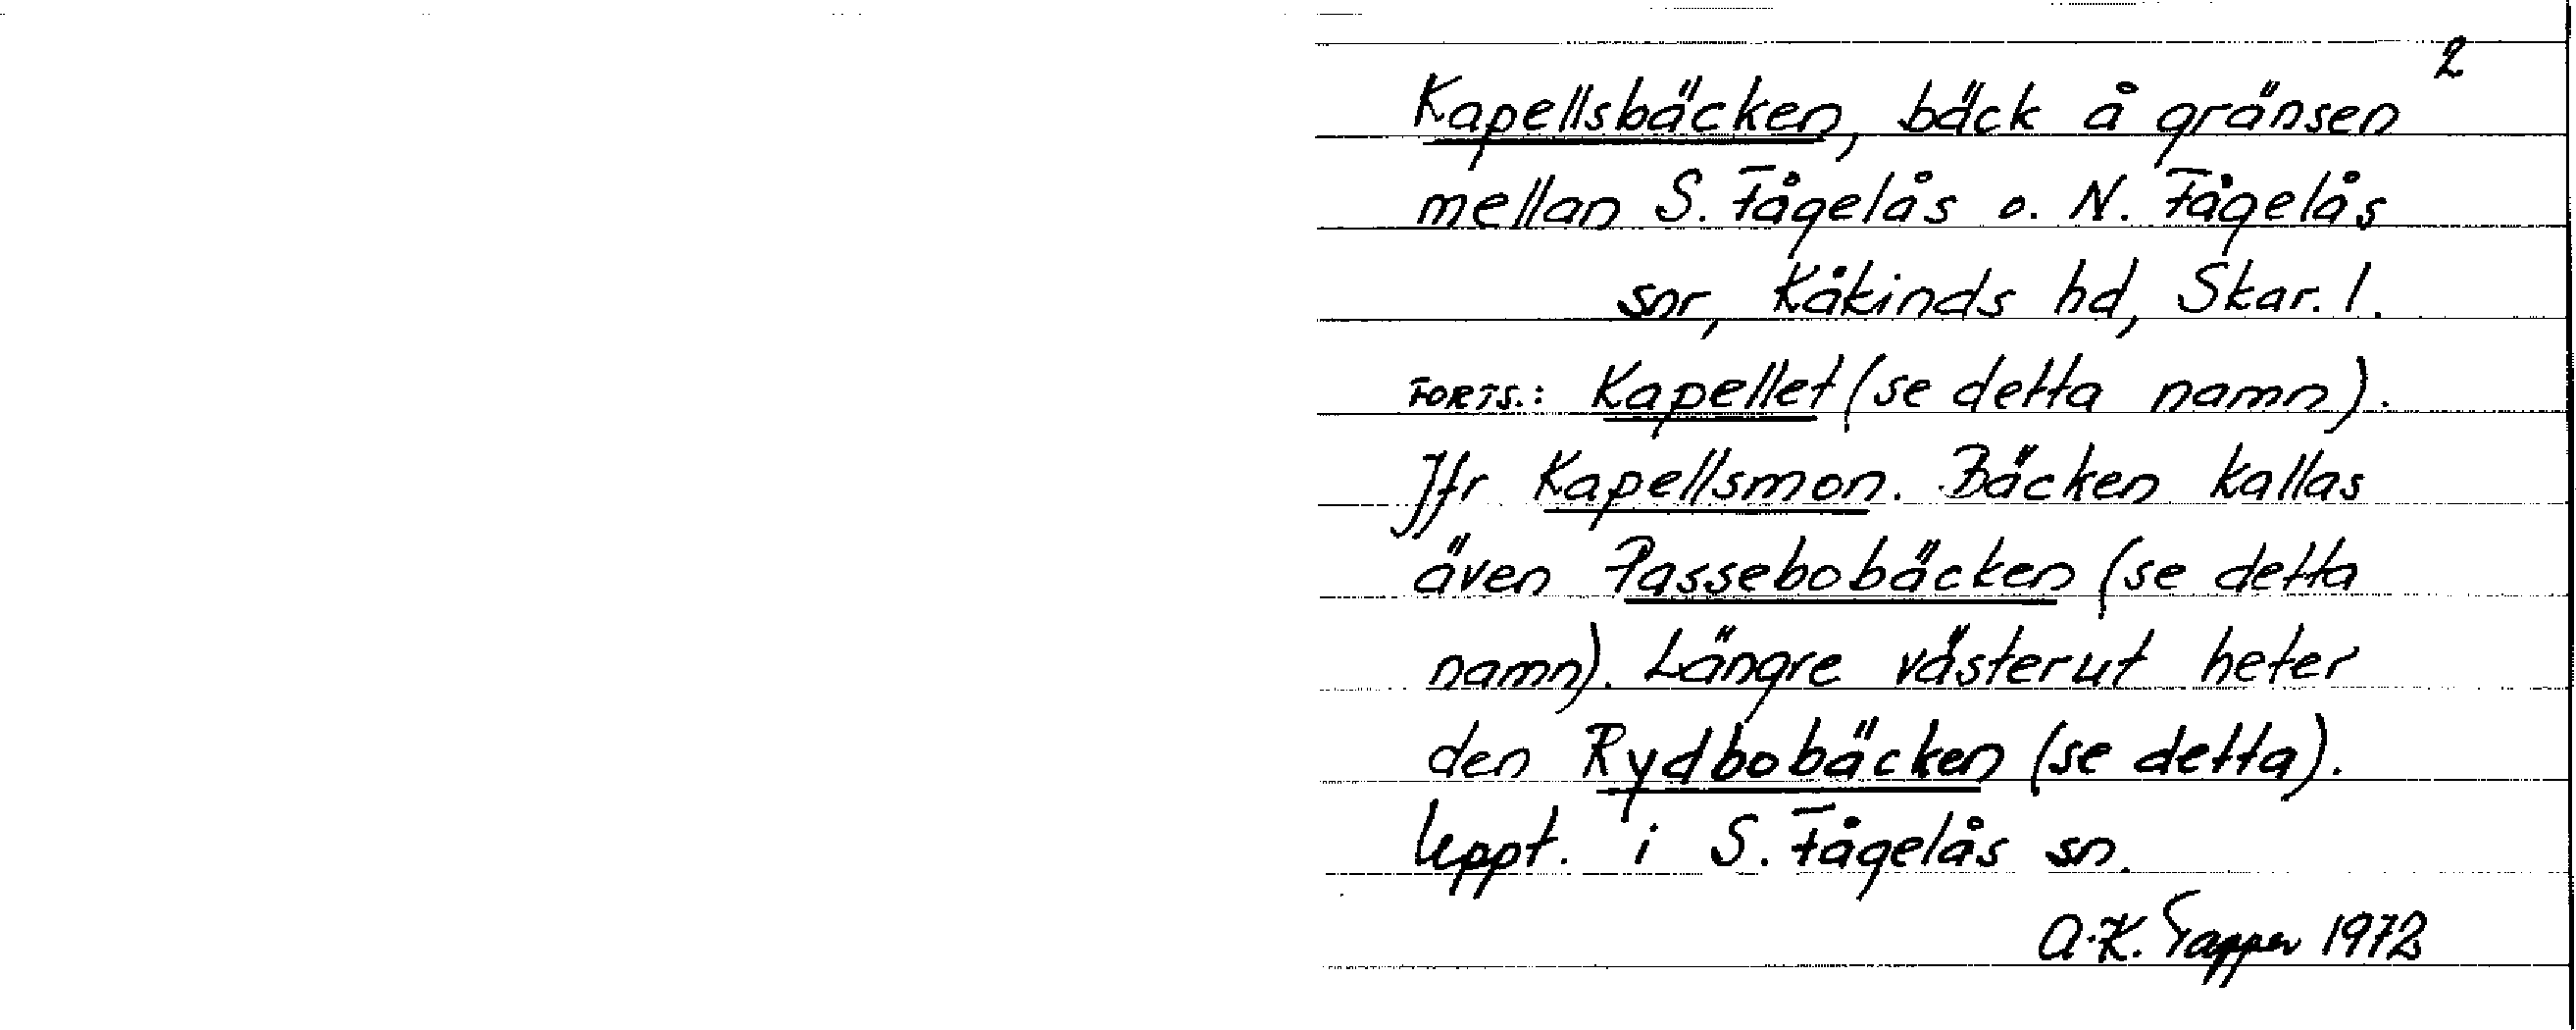 2
Kapellsbäcken, bäck å gränsen
mellan S. Fågelås o. N. Fågelås
snr, Kåkinds hd, Skar. l.
FORTS.: Kapellet (se detta namn).
Jfr Kapellsmon. Bäcken kallas
även Passebobäcken (se detta
namn). Längre västerut heter
den Rydbobäcken (se detta).
Uppt. i S. Fågelås sn.
A-K. Tapper 1972